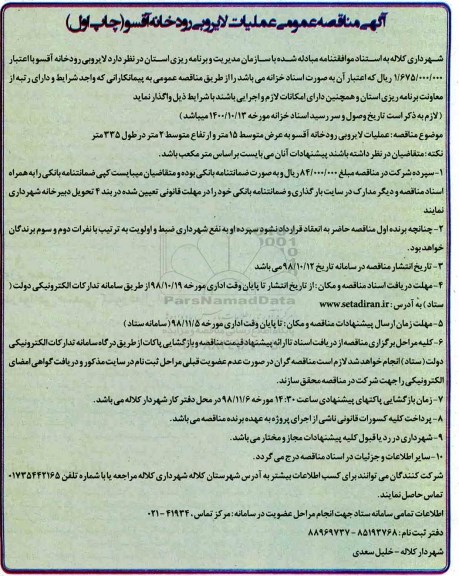 آگهی مناقصه عمومی عملیات لایروبی رودخانه آقسو (چاپ اول)
شهرداری کلاله به استناد موافقتنامه مبادله شده با سازمان مدیریت و برنامه ریزی استان در نظر دارد لایروبی رودخانه آقسو با اعتبار
۱/۶۷۵/۰۰۰/۰۰۰ ریال که اعتبار آن به صورت اسناد خزانه می باشد را از طریق مناقصه عمومی به پیمانکارانی که واجد شرایط و دارای رتبه از
معاونت برنامه ریزی استان و همچنین دارای امکانات لازم و اجرایی باشند با شرایط ذیل واگذار نماید
(لازم به ذکر است تاریخ وصول و سر رسید اسناد خزانه مورخه ۱۴۰۰/۱۰/۱۳ میباشد)
موضوع مناقصه: عملیات لایروبی رودخانه آقسو به عرض متوسط ۱۵ متر و ارتفاع متوسط ۲ متر در طول ۳۳۵ متر
نکته: متقاضیان در نظر داشته باشند پیشنهادات آنان می بایست بر اساس متر مکعب باشد.
۱- سپرده شرکت در مناقصه مبلغ ۸۴/۰۰۰/۰۰۰ ریال و به صورت ضمانتنامه بانکی بوده و متقاضیان میبایست کپی ضمانتنامه بانکی را به همراه
اسناد مناقصه و دیگر مدارک در سایت بارگذاری و ضمانتنامه بانکی خود را در مهلت قانونی تعیین شده در بند ۴ تحویل دبیرخانه شهرداری
نمایند
۲- چنانچه برنده اول مناقصه حاضر به انعقاد قرارداد نشود سپرده او به نفع شهرداری ضبط و اولویت به ترتیب با نفرات دوم و سوم برندگان
خواهد بود.
۳- تاریخ انتشار مناقصه در سامانه تاریخ ۹۸/۱۰/۱۲ می باشد
۴- مهلت دریافت اسناد مناقصه و مکان: از تاریخ انتشار تا پایان وقت اداری مورخه ۹۸/۱۰/۱۹ از طریق سامانه تدارکات الکترونیکی دولت (
ستاد) به آدرس: www.setadiran.ir
۵- مهلت زمان ارسال پیشنهادات مناقصه و مکان: تا پایان وقت اداری مورخه ۹۸/۱۱/۵ (سامانه ستاد)
۶- کلیه مراحل برگزاری مناقصه از دریافت اسناد تا ارائه پیشنهاد قیمت مناقصه و بازگشایی پاکات از طریق درگاه سامانه تدارکات الکترونیکی
دولت (ستاد) انجام خواهد شد لازم است مناقصه گران در صورت عدم عضویت قبلی مراحل ثبت نام در سایت مذکور و دریافت گواهی امضای
الکترونیکی را جهت شرکت در مناقصه محقق سازند.
۷- زمان بازگشایی پاکتهای پیشنهادی ساعت ۱۴:۳۰ مورخه ۹۸/۱۱/۶ در محل دفتر کار شهردار کلاله می باشد.
۸- پرداخت کلیه کسورات قانونی ناشی از اجرای پروژه به عهده برنده مناقصه می باشد.
۹- شهرداری در رد یا قبول کلیه پیشنهادات مجاز و مختار می باشد.
۱۰- سایر اطلاعات و جزئیات در اسناد مناقصه درج می گردد.
شرکت کنندگان می توانند برای کسب اطلاعات بیشتر به آدرس شهرستان کلاله شهرداری کلاله مراجعه یا با شماره تلفن ۰۱۷۳۵۴۴۲۱۶۵
تماس حاصل نمایند.
اطلاعات تماس سامانه ستاد جهت انجام مراحل عضویت در سامانه: مرکز تماس، ۴۱۹۳۴-۰۲۱
دفتر ثبت نام: ۸۵۱۹۳۷۶۸ - ۸۸۹۶۹۷۳۷
شهردار کلاله - خلیل سعدی
ParsNamadData